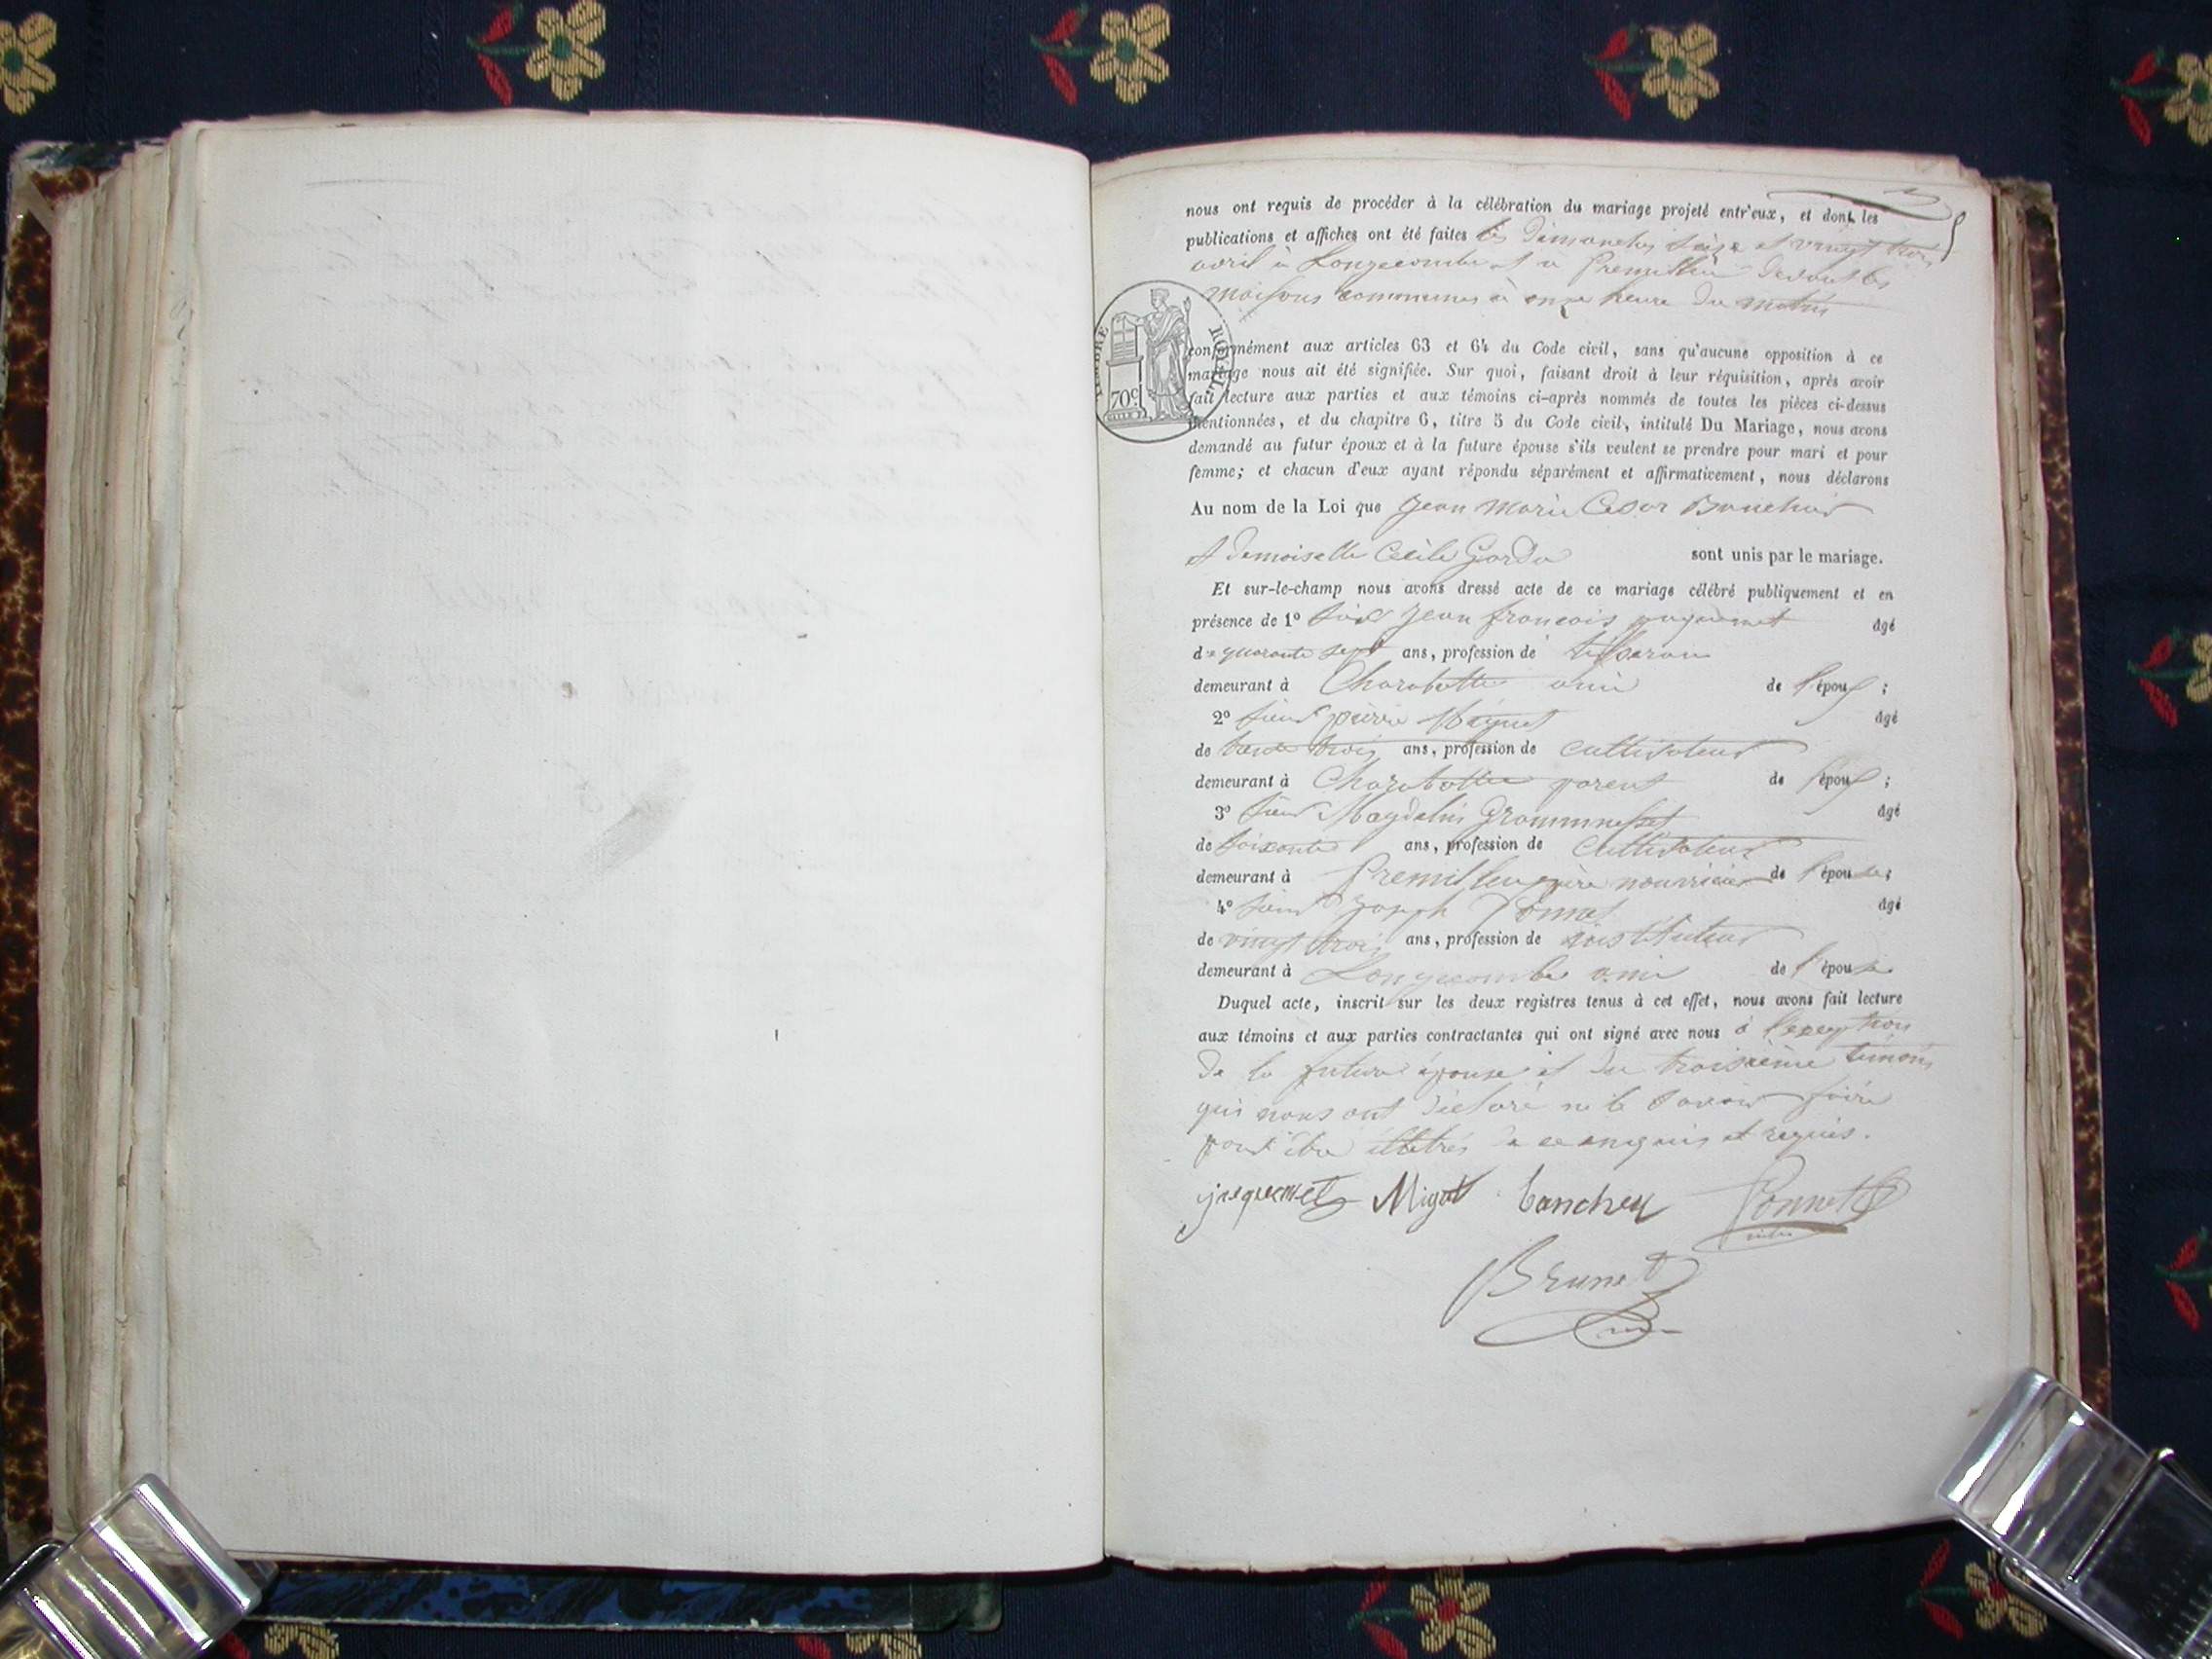 nous ont requis de procéder à la célébration du mariage projeté entr'eux, et dont les
publications et affiches ont été faites les Dimanches seize et vingt trois
avril à Longecombe et à Premillieu devant les
maisons communes à onze heure du matin
TIMBRE ROYAL
70c.
conformément aux articles 63 et 64 du Code civil, sans qu'aucune opposition à ce
mariage nous ait été signifiée. Sur quoi, faisant droit à leur réquisition, après avoir
fait lecture aux parties et aux témoins ci-après nommés de toutes les pièces ci-dessus
mentionnées, et du chapitre 6, titre 5 du Code civil, intitulé Du Mariage, nous avons
demandé au futur époux et à la future épouse s'ils veulent se prendre pour mari et pour
femme; et chacun d'eux ayant répondu séparément et affirmativement, nous déclarons
Au nom de la Loi que Jean Marie Cesar
et Demoiselle Cécile sont unis par le mariage.
Et sur-le-champ nous avons dressé acte de ce mariage célébré publiquement et en
présence de 1° Jean francois âgé
de quarante sept ans, profession de
demeurant à Charabotte ami de l'époux ;
2° Sieur pierre âgé
de trente trois ans, profession de cultivateur
demeurant à Charabotte parent de l'époux ;
3° Sieur âgé
de soixante ans, profession de cultivateur
demeurant à Premillieu père nourricier de l'épouse;
4° Sieur Joseph âgé
de vingt trois ans, profession de instituteur
demeurant à Longecombe ami de l'épouse
Duquel acte, inscrit sur les deux registres tenus à cet effet, nous avons fait lecture
aux témoins et aux parties contractantes qui ont signé avec nous à l'exception
de la future épouse et du troisième témoin
qui nous ont déclaré ne le savoir faire
pour être illetrés de ce enquis et requis.
jaquemet Migat bancheu Bonnet
Brunet